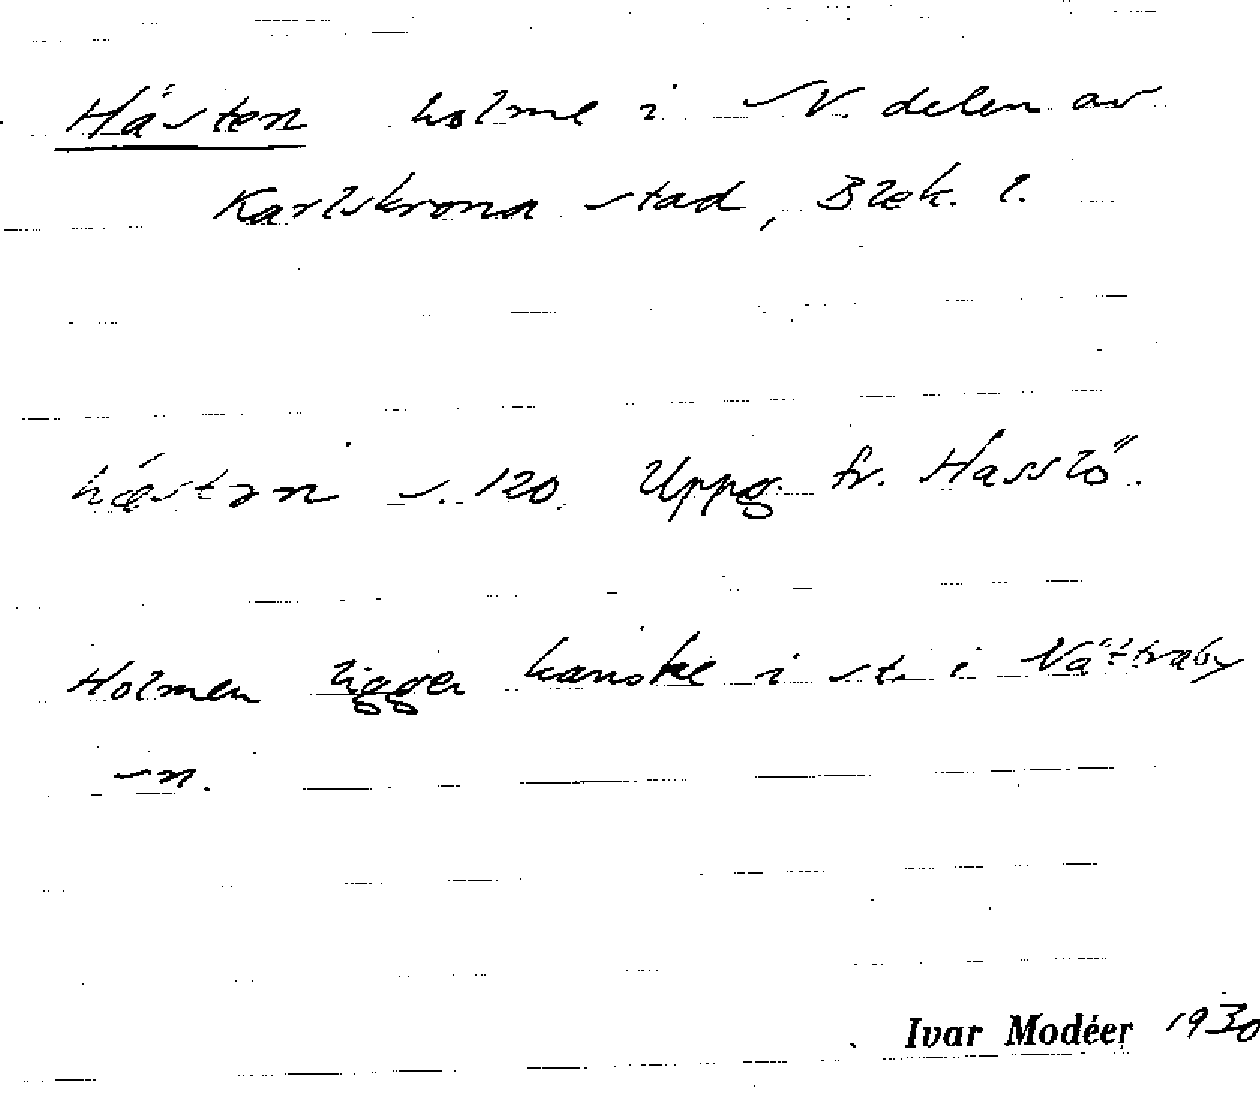 Hästen holme i N. delen av
Karlskrona stad, Blek. l.
hæstɘn s. 120. Uppg. fr. Hasslö.
Holmen ligger kanske i st. i Nättraby
sn.
Ivar Modéer 1930